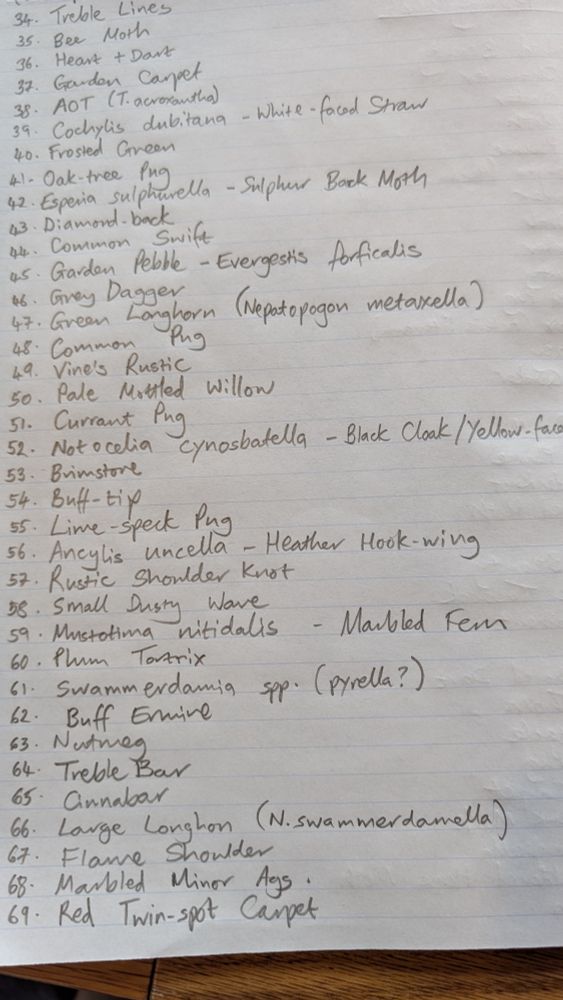 34. Treble Lines
35. Bee Moth
36. Heart + Dart
37. Garden Carpet
38. AOT (T. acroxantha)
39. Cochylis dubitana - White-faced Straw
40. Frosted Green
41. Oak-tree Pug
42. Esperia sulphurella - Sulphur Back Moth
43. Diamond-back
44. Common Swift
45. Garden Pebble - Evergestis forficalis
46. Grey Dagger
47. Green Longhorn (Nepatopogon metaxella)
48. Common Pug
49. Vine's Rustic
50. Pale Mottled Willow
51. Currant Pug
52. Notocelia cynosbatella - Black Cloak/Yellow-face
53. Brimstone
54. Buff-tip
55. Lime-speck Pug
56. Ancylis uncella - Heather Hook-wing
57. Rustic Shoulder Knot
58. Small Dusty Wave
59. Mustotima nitidalis - Marbled Fern
60. Plum Tortrix
61. Swammerdamia spp. (pyrella?)
62. Buff Ermine
63. Nutmeg
64. Treble Bar
65. Cinnabar
66. Large Longhon (N. swammerdamella)
67. Flame Shoulder
68. Marbled Minor Agg.
69. Red Twin-spot Carpet